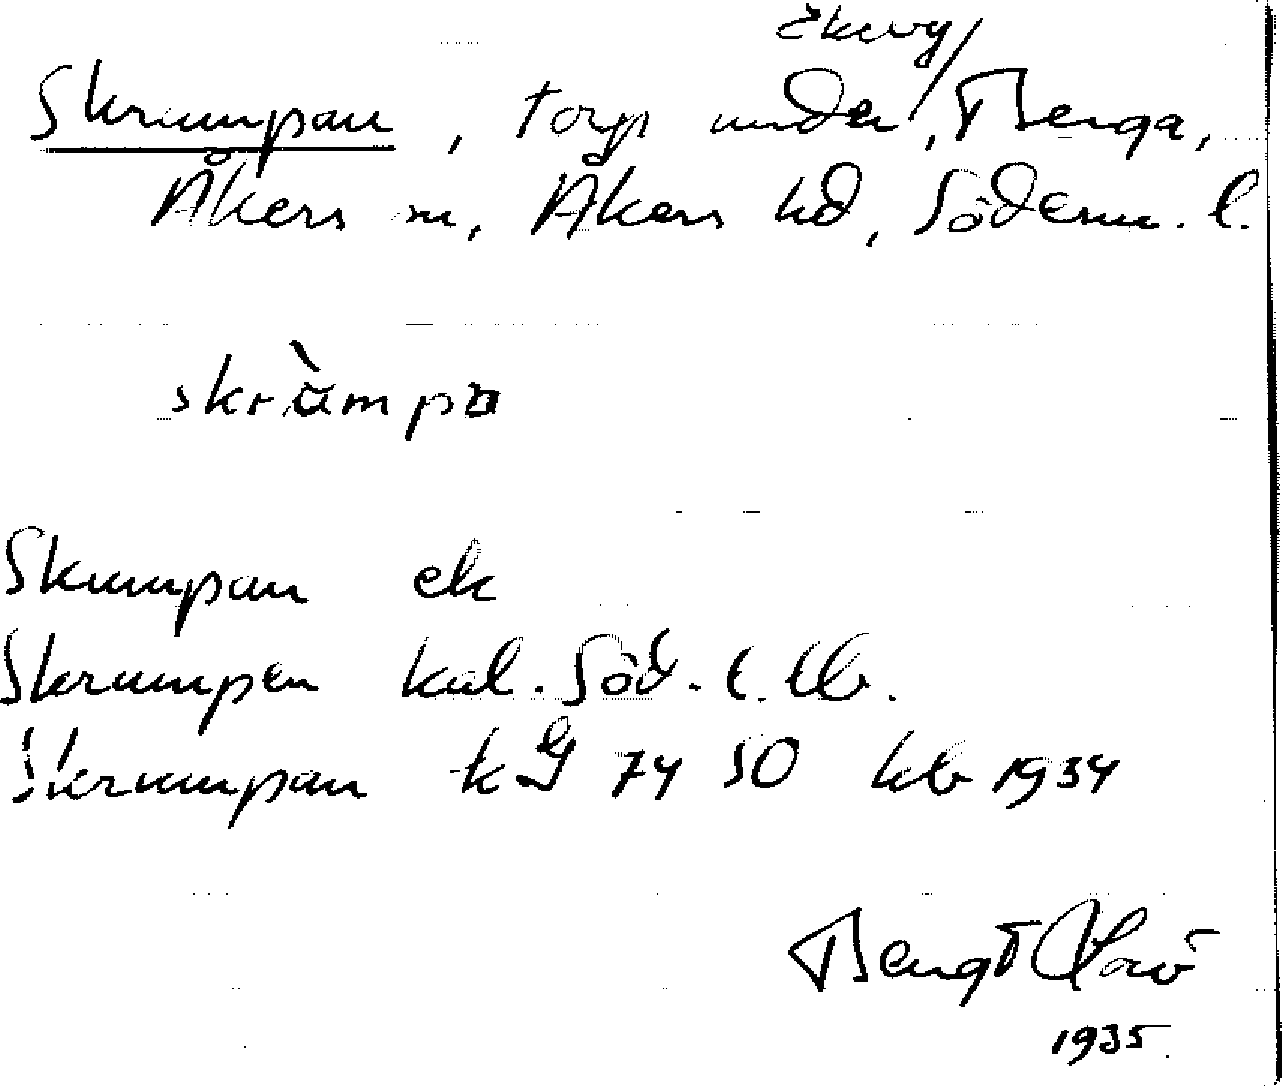 Ekevy/
Skrumpan, torp under, Berga,
Åkers sn, Åkers hd, Söderm. l.
skrùmpa
Skrumpan ek
Skrumpen kal. Söd. l. tb.
Skrumpan kG 74 50 hb 1934
Bengt
1935